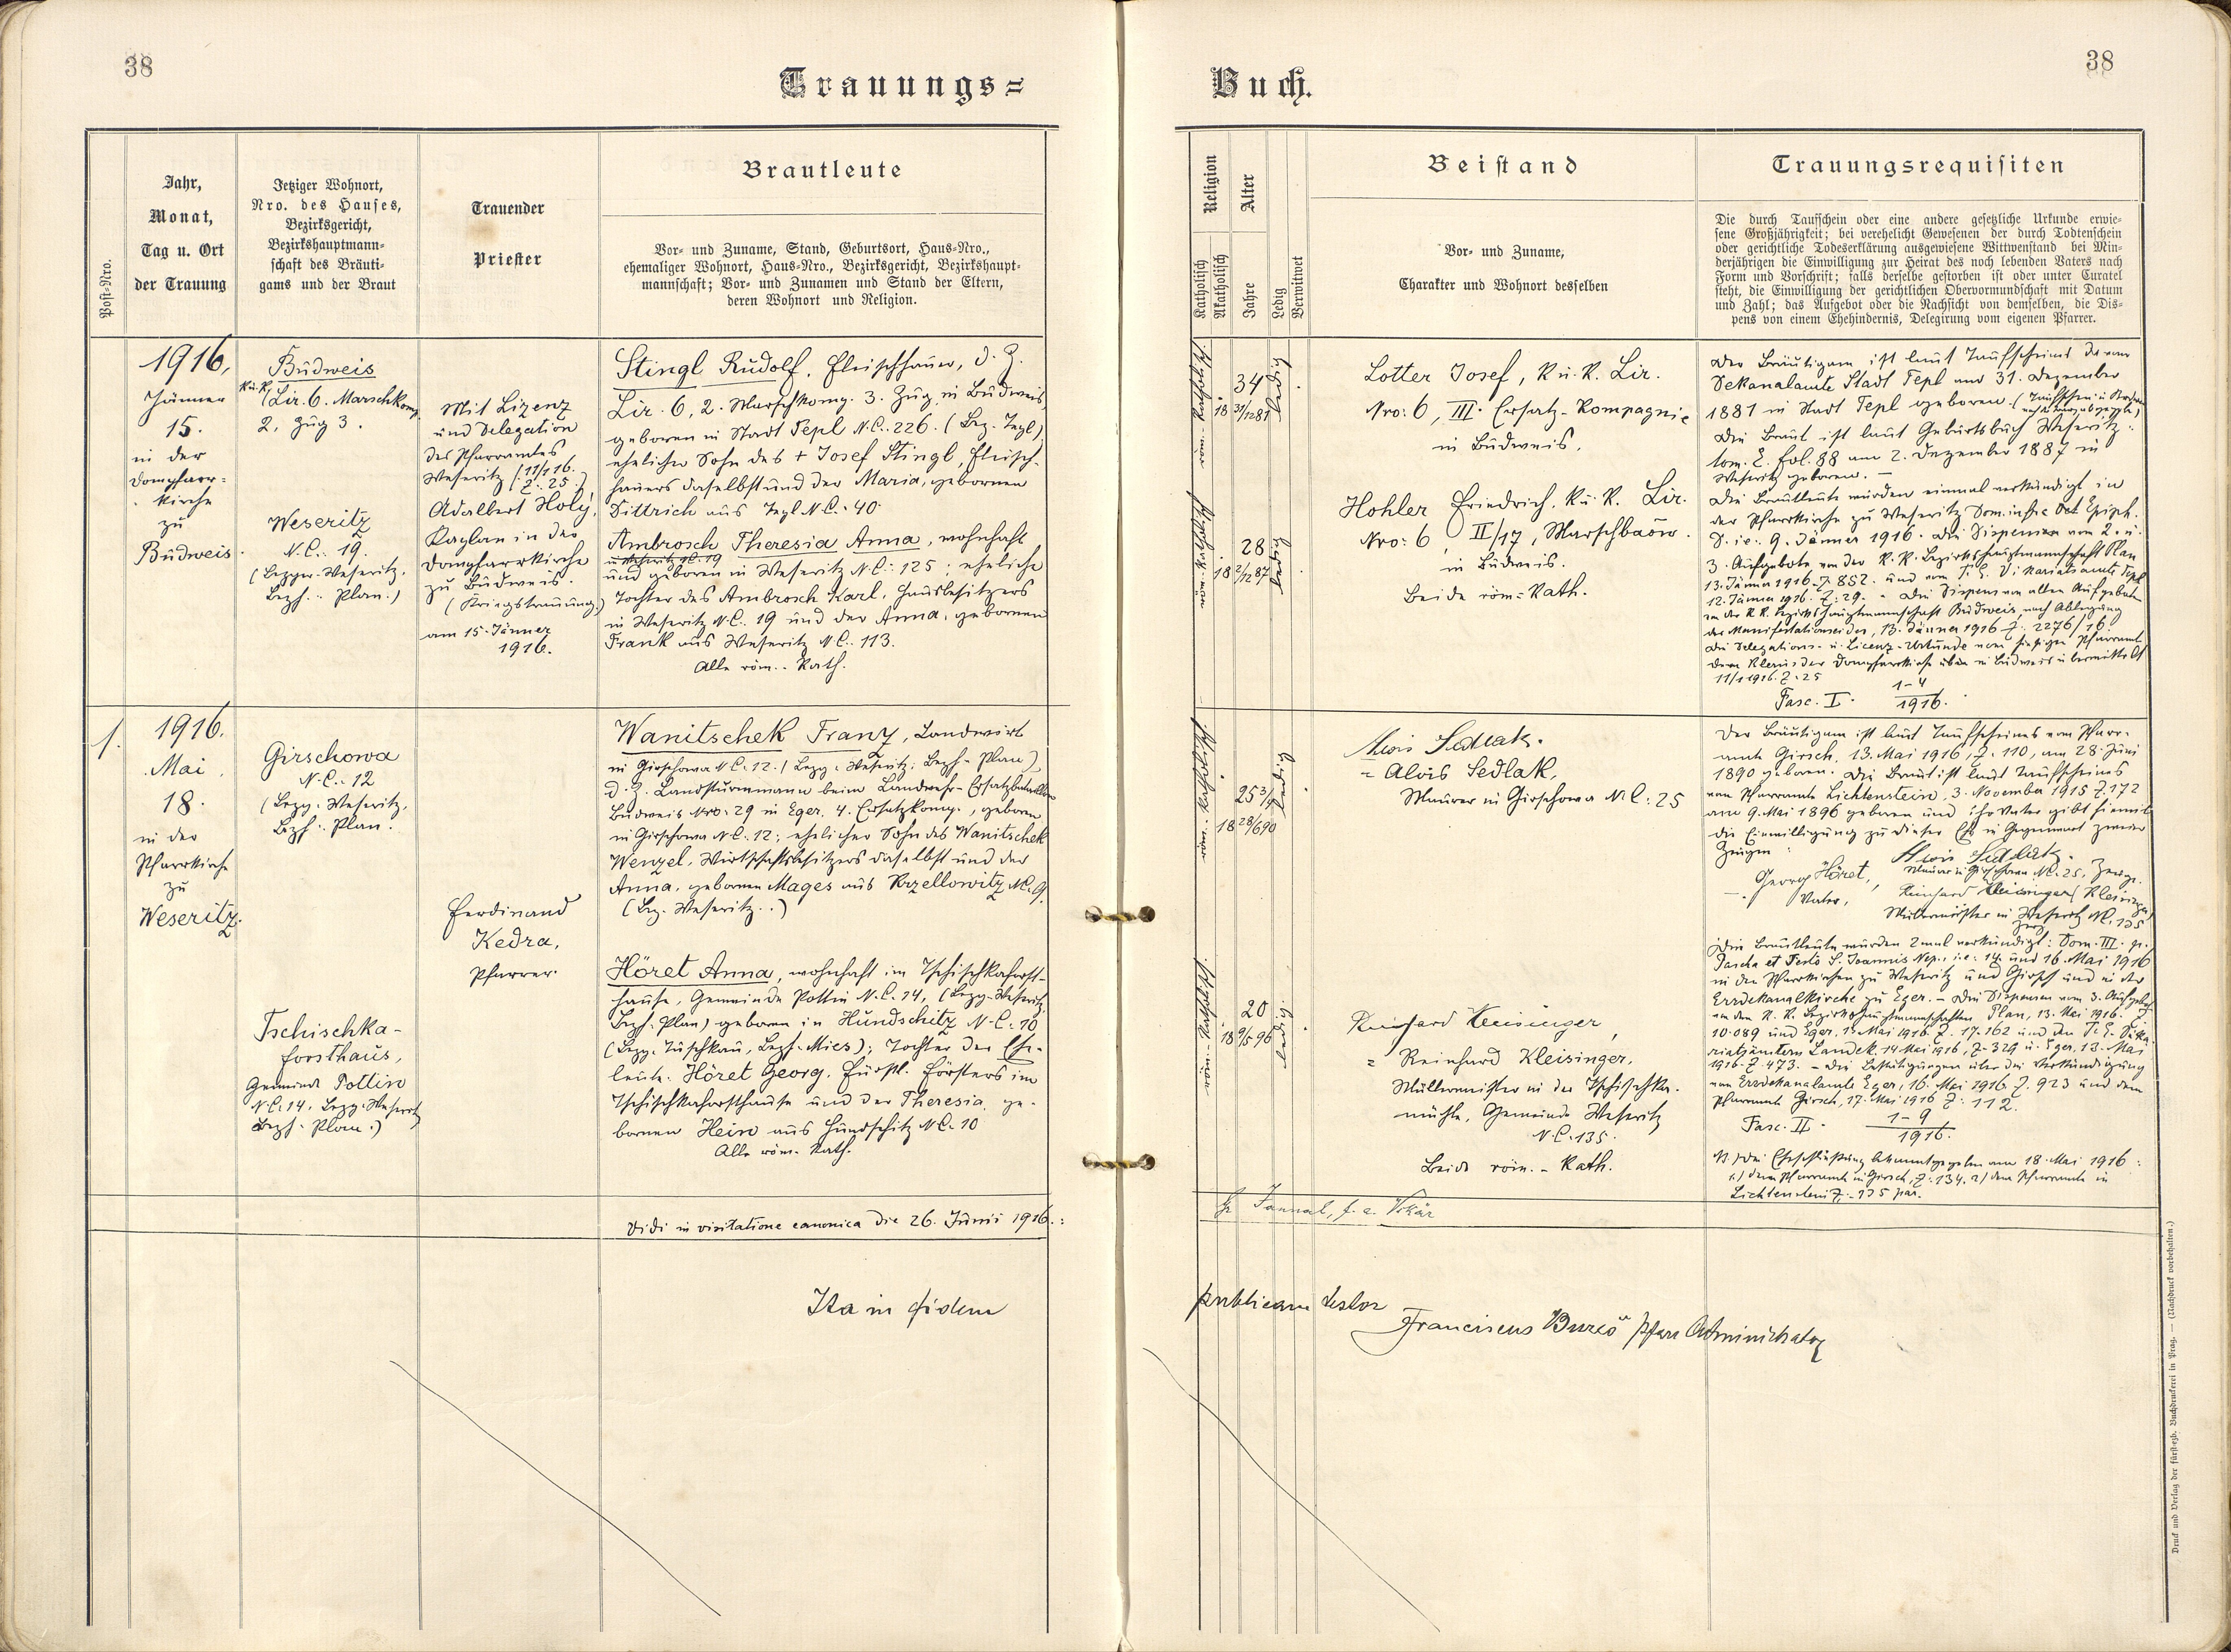 38
Trauungs=
Post-Nro.
Jahr,
Monat,
Tag u. Ort
der Trauung
Jetziger Wohnort,
Nro. des Hauses,
Bezirksgericht,
Bezirkshauptmann-
schaft des Bräuti-
gams und der Braut
Trauender
Priester
Brautleute
Vor- und Zuname, Stand, Geburtsort, Haus-Nro.,
ehemaliger Wohnort, Haus-Nro., Bezirksgericht, Bezirkshaupt-
mannschaft; Vor- und Zunamen und Stand der Eltern,
deren Wohnort und Religion.
1916,
Jänner
15.
in der
Dompfarr-
kirche
zu
Budweis.
Budweis
k.u.k. Lir. 6. Marschkomp.
2. Zug 3.
Weseritz
N.C. 19.
(Bezger. Weseritz,
Bezh. Plan.)
Mit Lizenz
und Delegation
des Pfarramtes
Weseritz (11/1 16.
Z: 25.)
Adalbert Holý,
Kaplan in der
Dompfarrkirche
zu Budweis.
(Kriegstrauung.)
am 15. Jänner
1916.
Stingl Rudolf, Fleischhauer, d. Z.
Lir. 6, 2. Marschkomp. 3. Zug in Budweis,
geboren in Stadt Tepl N.C. 226. (Bez. Tepl)
ehelicher Sohn des + Josef Stingl, Fleisch-
hauers daselbst und der Maria, gebornen
Dittrich aus Tepl N.C. 40.
Ambrosch Theresia Anna, wohnhaft
in Weseritz N.C. 19
und geboren in Weseritz N.C: 125; eheliche
Tochter des Ambrosch Karl, Hausbesitzers
in Weseritz N.C. 19 und der Anna, gebornen
Frank aus Weseritz N.C. 113.
Alle röm.-kath.
1.
1916.
Mai
18.
in der
Pfarrkirche
zu
Weseritz.
Girschowa
N.C.: 12
(Bezg. Weseritz,
Bzh. Plan.
Tschischka-
forsthaus,
Gemeinde Pottin
N.C. 14, Bezg. Weseritz
Bezh. Plan.)
Ferdinand
Kedra,
Pfarrer.
Wanitschek Franz, Landwirt
in Girschowa N.C. 12. (Bezg. Weseritz; Bezh. Plan)
d. Z. Landsturmmann beim Landwehr-Ersatzbataillon
Budweis Nro. 29 in Eger, 4. Ersatzkomp., geboren
in Girschowa N.C. 12; ehelicher Sohn des Wanitschek
Wenzel, Wirtschaftsbesitzers daselbst und der
Anna, gebornen Mages aus Krzellowitz N.C. 9.
(Bez. Weseritz.)
Höret Anna, wohnhaft im Tschischkaforst-
hause, Gemeinde Pottin N.C. 14, (Bezg. Weseritz,
Bezh. Plan) geboren in Hundschitz N.C. 10
(Bezg. Tuschkau, Bezh. Mies); Tochter der Ehe-
leute: Höret Georg, Fürstl. Försters im
Tschischkaforsthause und der Theresia, ge-
bornen Hein aus Hundschitz N.C. 10
Alle röm. kath.
Vidi in visitatione canonica die 26. Junii 1916.:
Ita in fidem
38
Buch.
Religion
Katholisch
Akatholisch
Alter
Jahre
Ledig
Verwitwet
Beistand
Vor- und Zuname,
Charakter und Wohnort desselben
Trauungsrequisiten
Die durch Taufschein oder eine andere gesetzliche Urkunde erwie-
sene Großjährigkeit; bei verehelicht Gewesenen der durch Todtenschein
oder gerichtliche Todeserklärung ausgewiesene Wittwenstand bei Min-
derjährigen die Einwilligung zur Heirat des noch lebenden Vaters nach
Form und Vorschrift; falls derselbe gestorben ist oder unter Curatel
steht, die Einwilligung der gerichtlichen Obervormundschaft mit Datum
und Zahl; das Aufgebot oder die Nachsicht von demselben, die Dis-
pens von einem Ehehindernis, Delegirung vom eigenen Pfarrer.
34
18 31/12 81
ledig
28
18 2/12 87
ledig
Lotter Josef, k.u.k. Lir.
Nro: 6, III. Ersatz-Kompagnie
in Budweis.
Hohler Friedrich, k.u.k. Lir.
Nro: 6, II/17, Marschbaon.
in Budweis.
Beide röm.-kath.
Der Bräutigam ist laut Taufscheines des
Dekanalamtes Stadt Tepl am 31. Dezember
1881 in Stadt Tepl geboren.
Die Braut ist laut Geburtsbuch Weseritz:
tom. E. fol. 88 am 2. Dezember 1887 in
Weseritz geboren. –
Die Brautleute wurden einmal verkündigt in
der Pfarrkirche zu Weseritz Dom. infra Oct. Epiph.
D. i.e.: 9. Jänner 1916. Die Dispensen vom 2. u.
3. Aufgebote von der k.k. Bezirkshauptmannschaft Plan
13. Jänner 1916. Z. 852. und vom T.E. Vikariatsamte Tepl
12. Jänner 1916. Z: 29. – Die Dispens von allen Aufgeboten
von der k.k. Bezirkshauptmannschaft Budweis nach Ablegung
des Manifestationseides, 13. Jänner 1916 Z: 2276/16
Die Delegations- u. Licenz-Urkunde vom hiesigen Pfarramte
dem Klerus der Dompfarrkirche in Budweis übermittelt
11/1 1916. Z: 25
Fasc. I. 1-4
1916.
25 3/4
18 28/6 90
ledig
20
18 9/5 96
ledig
Alois Sedlak.
= Alois Sedlak,
Maurer in Girschowa N.C: 25
Reinhard Kleisinger,
= Reinhard Kleisinger,
Müllermeister in der Tschischka-
mühle, Gemeinde Weseritz
N.C. 135.
Beide röm.-kath.
Der Bräutigam ist laut Taufscheines vom Pfarr-
amte Girsch, 13. Mai 1916, Z. 110, am 28. Juni
1890 geboren. Die Braut ist laut Taufscheines
vom Pfarramte Lichtenstein, 3. November 1915 Z. 172
am 9. Mai 1896 geboren und ihr Vater gibt hiemit
die Einwilligung zu dieser Ehe in Gegenwart zweier
Zeugen:
Alois Sedlak.
Georg Höret, Maurer in Girschowa N.C. 25, Zeuge.
Vater, Reinhard Kleisinger (Kleisinger)
Müllermeister in Weseritz N.C. 135
Zeuge
Die Brautleute wurden 2mal verkündigt: Dom. III. p.
Pascha et Festo S. Joannis Nep., i.e. 14. und 16. Mai 1916
in den Pfarrkirchen zu Weseritz und Girsch und in der
Erzdekanalkirche zu Eger. – Die Dispensen vom 3. Aufgebote
von den k.k. Bezirkshauptmannschaften Plan, 13. Mai 1916. Z
10.089 und Eger, 13. Mai 1916. Z. 17.162 und den T.E. Vika-
riatsämtern Landek, 14. Mai 1916, Z. 329 u. Eger, 13. Mai
1916. Z. 473. – Die Bestätigungen über die Verkündigung
vom Erzdekanalamte Eger, 16. Mai 1916 Z. 923 und dem
Pfarramte Girsch, 17. Mai 1916 Z: 112.
Fasc. II. 1-9
1916.
Die Eheschließung bekanntgegeben am 18. Mai 1916:
1.) dem Pfarramte in Girsch, Z: 134. 2) dem Pfarramte in
Lichtenstein Z. 135 par.
publicam testor
Franciscus Bureš Pfarr Administrator
Druck und Verlag der fürst-ezb. Buchdruckerei in Prag. — (Nachdruck vorbehalten.)